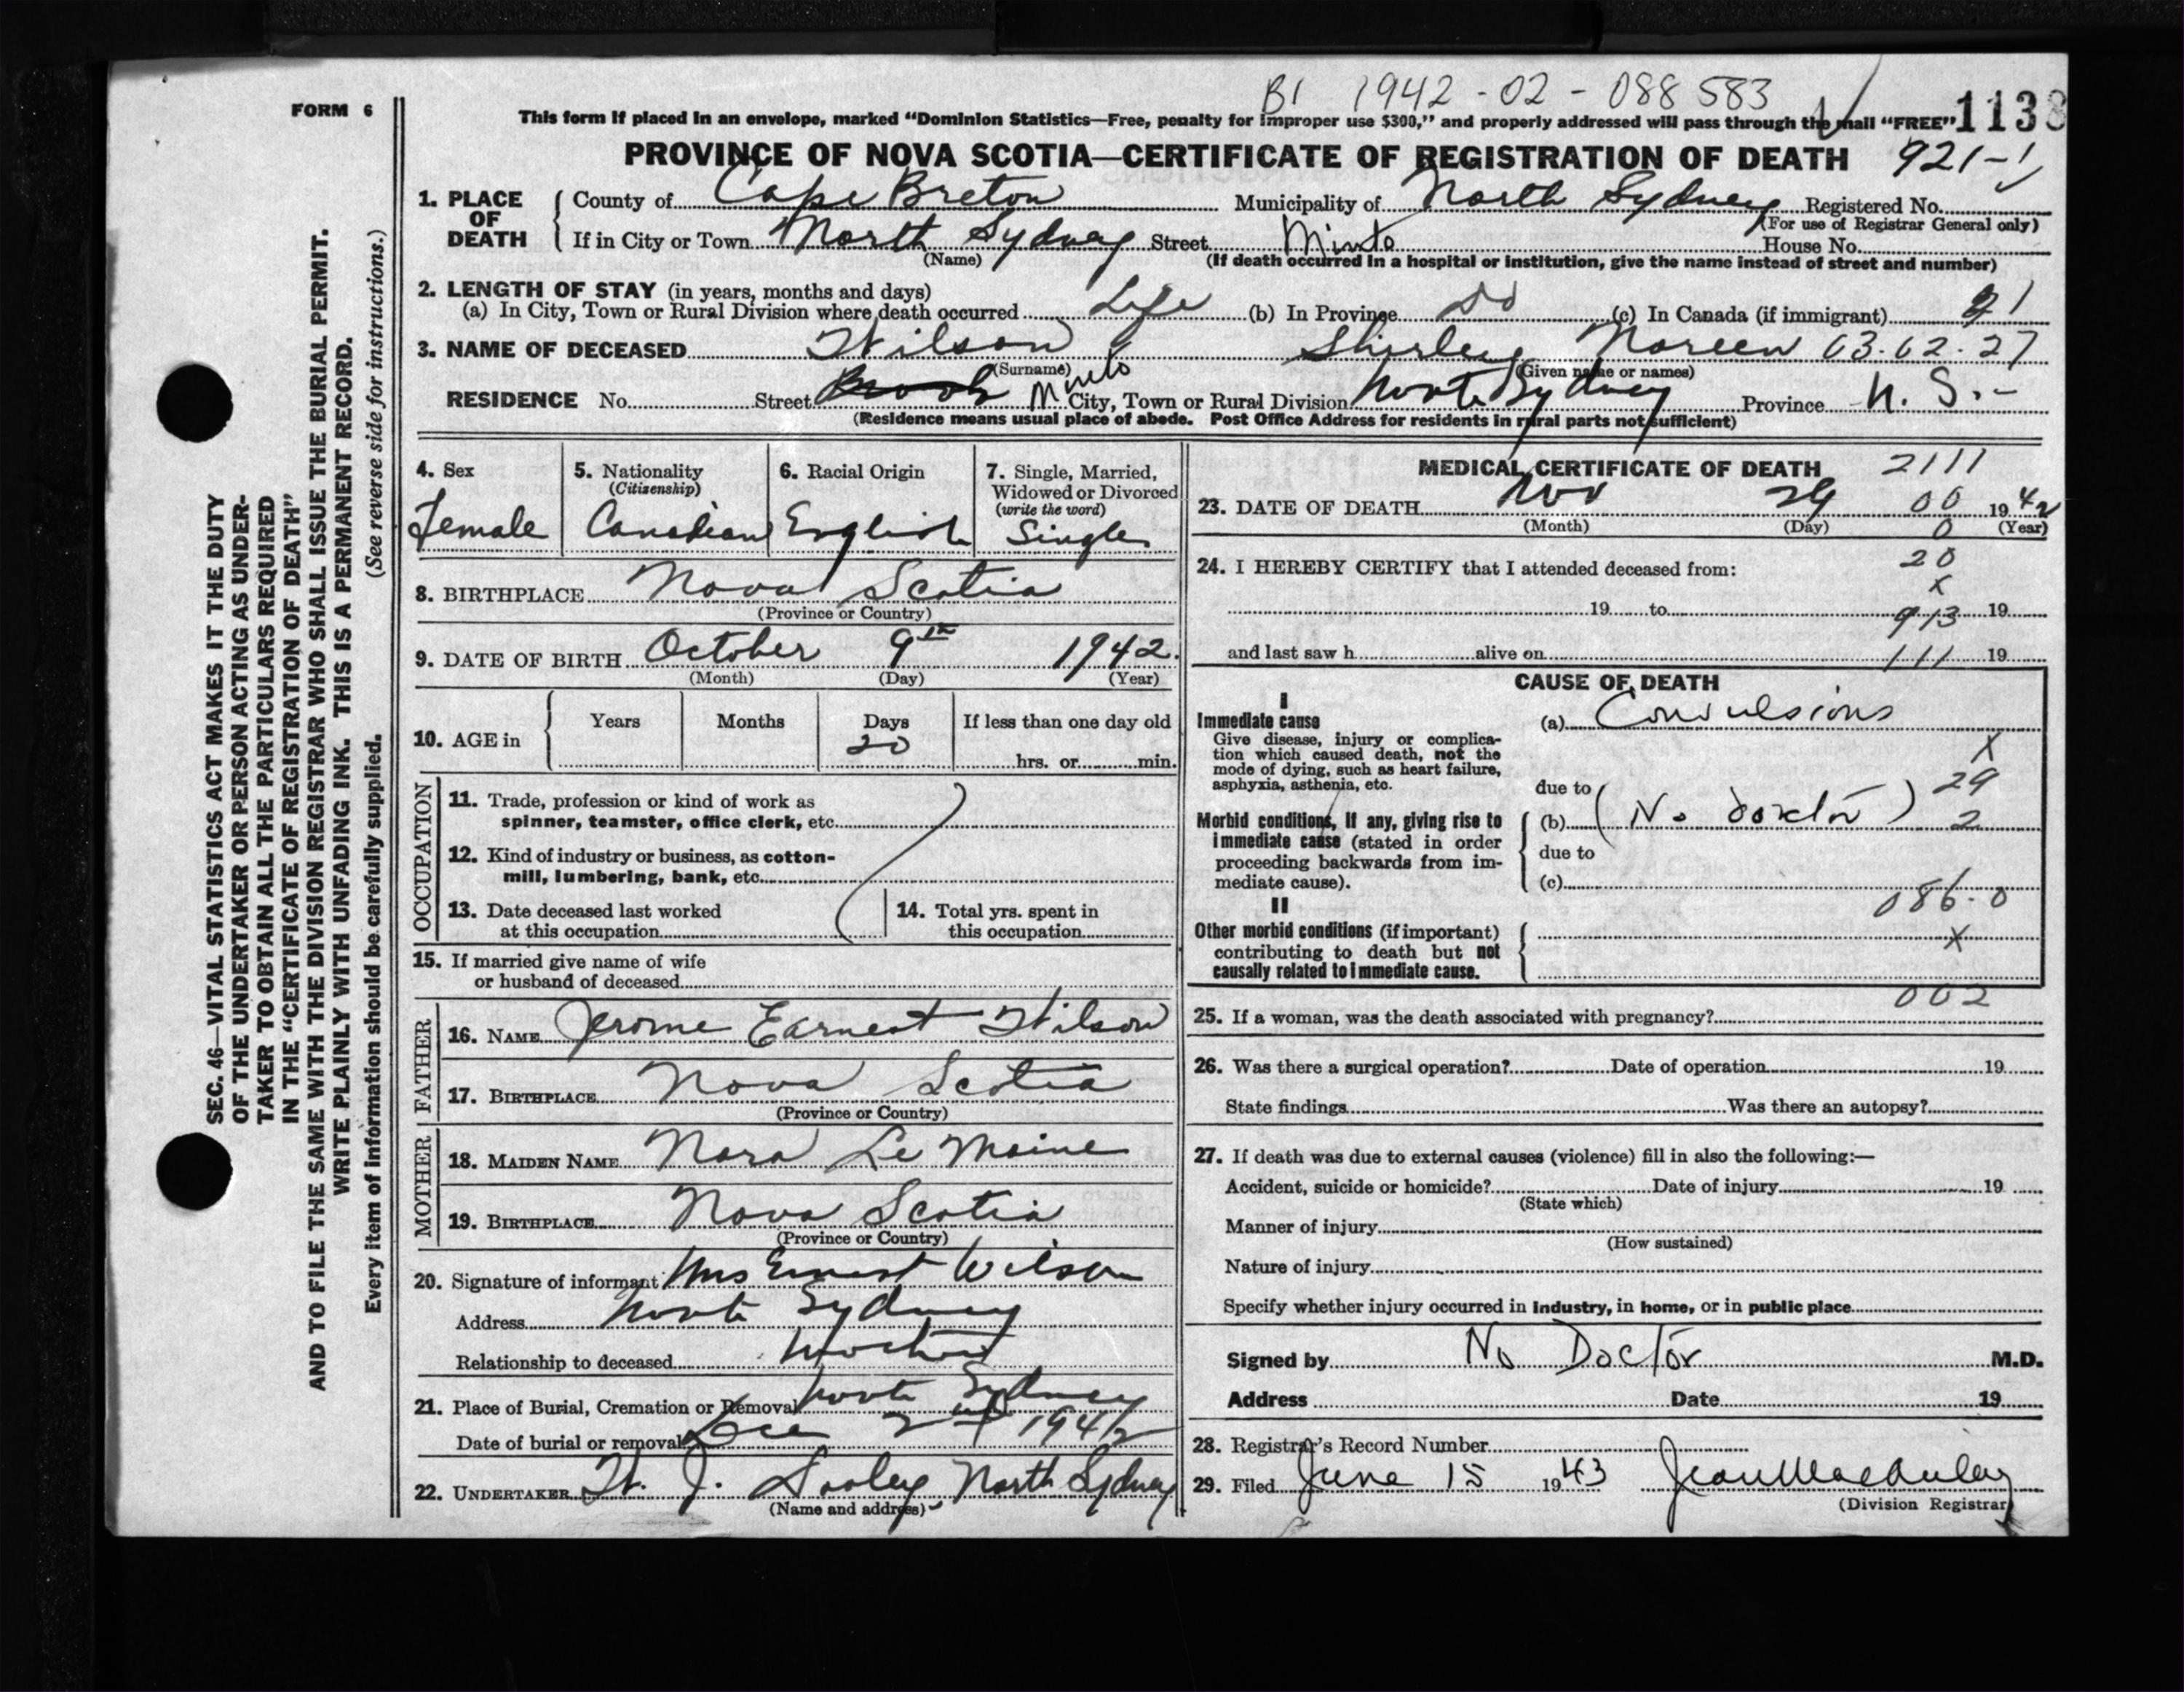 B1 1942-02-088583
FORM 6
This form if placed in an envelope, marked “Dominion Statistics—Free, penalty for improper use $300,” and properly addressed will pass through the mail “FREE” 1138
PROVINCE OF NOVA SCOTIA—CERTIFICATE OF REGISTRATION OF DEATH 921-1
1. PLACE OF DEATH
County of Cape Breton Municipality of North Sydney Registered No.
(For use of Registrar General only)
If in City or Town North Sydney Street Minto House No.
(Name) (If death occurred in a hospital or institution, give the name instead of street and number)
2. LENGTH OF STAY (in years, months and days)
(a) In City, Town or Rural Division where death occurred Life (b) In Province Do (c) In Canada (if immigrant) 21
3. NAME OF DECEASED Wilson Shirley Noreen 03-02-27
(Surname) (Given name or names)
RESIDENCE No. Street Minto City, Town or Rural Division North Sydney Province N. S.-
(Residence means usual place of abode. Post Office Address for residents in rural parts not sufficient)
4. Sex
Female
5. Nationality
(Citizenship)
Canadian
6. Racial Origin
English
7. Single, Married,
Widowed or Divorced
(write the word)
Single
8. BIRTHPLACE Nova Scotia
(Province or Country)
9. DATE OF BIRTH October 9th 1942.
(Month) (Day) (Year)
10. AGE in
Years Months Days If less than one day old
20
hrs. or min.
OCCUPATION
11. Trade, profession or kind of work as
spinner, teamster, office clerk, etc.
12. Kind of industry or business, as cotton-
mill, lumbering, bank, etc.
13. Date deceased last worked
at this occupation
14. Total yrs. spent in
this occupation
15. If married give name of wife
or husband of deceased
FATHER
16. NAME Jerome Earnest Wilson
17. BIRTHPLACE Nova Scotia
(Province or Country)
MOTHER
18. MAIDEN NAME Nora Le Moine
19. BIRTHPLACE Nova Scotia
(Province or Country)
20. Signature of informant Mrs Ernest Wilson
Address North Sydney
Relationship to deceased Mother
21. Place of Burial, Cremation or Removal North Sydney
Date of burial or removal Dec 2nd 1942
22. UNDERTAKER W. J. Dooley North Sydney
(Name and address)
MEDICAL CERTIFICATE OF DEATH 2111
23. DATE OF DEATH Nov 29 00 1942
(Month) (Day) 0 (Year)
24. I HEREBY CERTIFY that I attended deceased from: 20
x
19 to 913 19
and last saw h alive on 111 19
CAUSE OF DEATH
I
Immediate cause
Give disease, injury or complica-
tion which caused death, not the
mode of dying, such as heart failure,
asphyxia, asthenia, etc.
(a) Convulsions
X
due to 29
Morbid conditions, if any, giving rise to
immediate cause (stated in order
proceeding backwards from im-
mediate cause).
(b) (No doctor) 2
due to
(c)
086-0
II
Other morbid conditions (if important)
contributing to death but not
causally related to immediate cause.
X
002
25. If a woman, was the death associated with pregnancy?
26. Was there a surgical operation? Date of operation 19
State findings Was there an autopsy?
27. If death was due to external causes (violence) fill in also the following:—
Accident, suicide or homicide? Date of injury 19
(State which)
Manner of injury
(How sustained)
Nature of injury
Specify whether injury occurred in industry, in home, or in public place
Signed by No Doctor M.D.
Address Date 19
28. Registrar's Record Number
29. Filed June 15 1943 Jean MacAulay
(Division Registrar)
SEC. 46—VITAL STATISTICS ACT MAKES IT THE DUTY
OF THE UNDERTAKER OR PERSON ACTING AS UNDER-
TAKER TO OBTAIN ALL THE PARTICULARS REQUIRED
IN THE “CERTIFICATE OF REGISTRATION OF DEATH”
AND TO FILE THE SAME WITH THE DIVISION REGISTRAR WHO SHALL ISSUE THE BURIAL PERMIT.
WRITE PLAINLY WITH UNFADING INK. THIS IS A PERMANENT RECORD.
Every item of information should be carefully supplied. (See reverse side for instructions.)